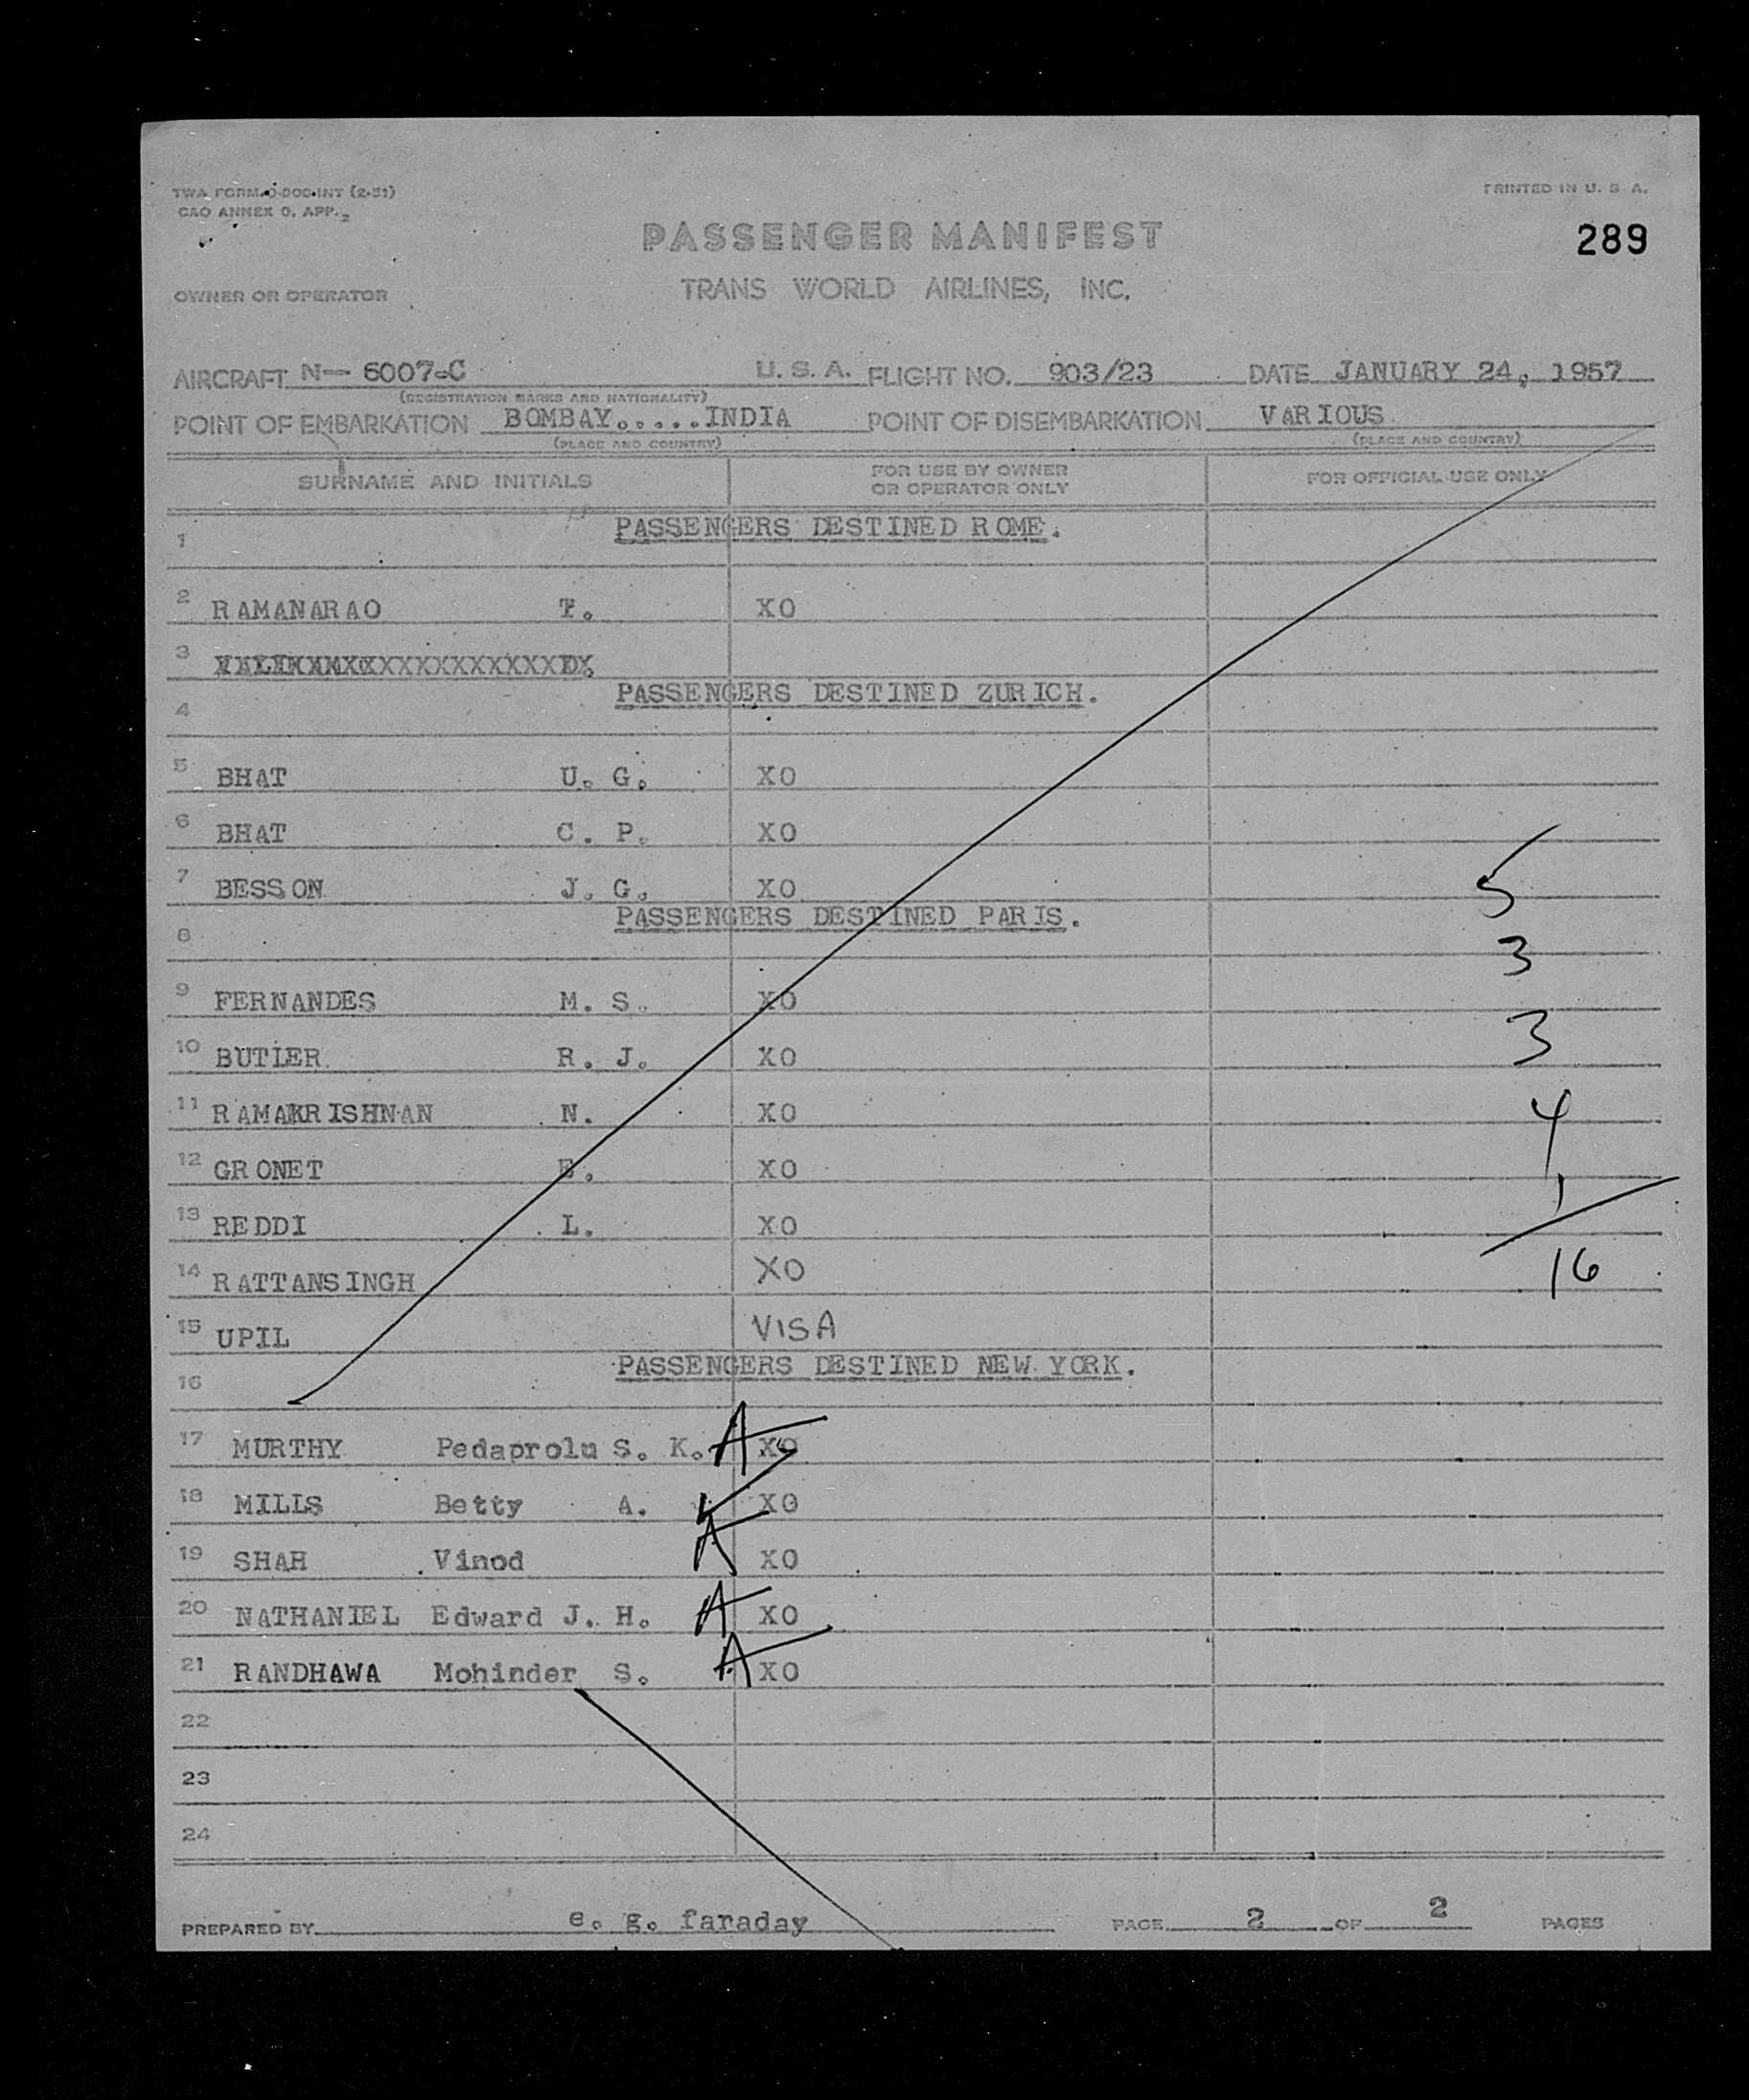 TWA FORM O-000-INT (2-51)
PRINTED IN U. S. A.
CAO ANNEX 0, APP. 2
PASSENGER MANIFEST
289
OWNER OR OPERATOR
TRANS WORLD AIRLINES, INC.
AIRCRAFT N-- 6007-C U. S. A. FLIGHT NO. 903/23 DATE JANUARY 24, 1957
(REGISTRATION MARKS AND NATIONALITY)
POINT OF EMBARKATION BOMBAY......INDIA POINT OF DISEMBARKATION VARIOUS
(PLACE AND COUNTRY) (PLACE AND COUNTRY)
SURNAME AND INITIALS FOR USE BY OWNER OR OPERATOR ONLY FOR OFFICIAL USE ONLY
1 PASSENGERS DESTINED ROME.
2 RAMANARAO T. XO
3
PASSENGERS DESTINED ZURICH.
4
5 BHAT U. G. XO
6 BHAT C. P. XO
7 BESSON J. G. XO 5
PASSENGERS DESTINED PARIS.
8 3
9 FERNANDES M. S. XO
10 BUTLER R. J. XO 3
11 RAMAKRISHNAN N. XO 4
12 GRONET E. XO
13 REDDI L. XO 1
14 RATTANSINGH XO 16
15 UPIL VISA
PASSENGERS DESTINED NEW YORK.
16
17 MURTHY Pedaprolu S. K. A XO
18 MILLS Betty A. XO
19 SHAH Vinod A XO
20 NATHANIEL Edward J. H. A XO
21 RANDHAWA Mohinder S. A XO
22
23
24
PREPARED BY e. g. faraday PAGE 2 OF 2 PAGES